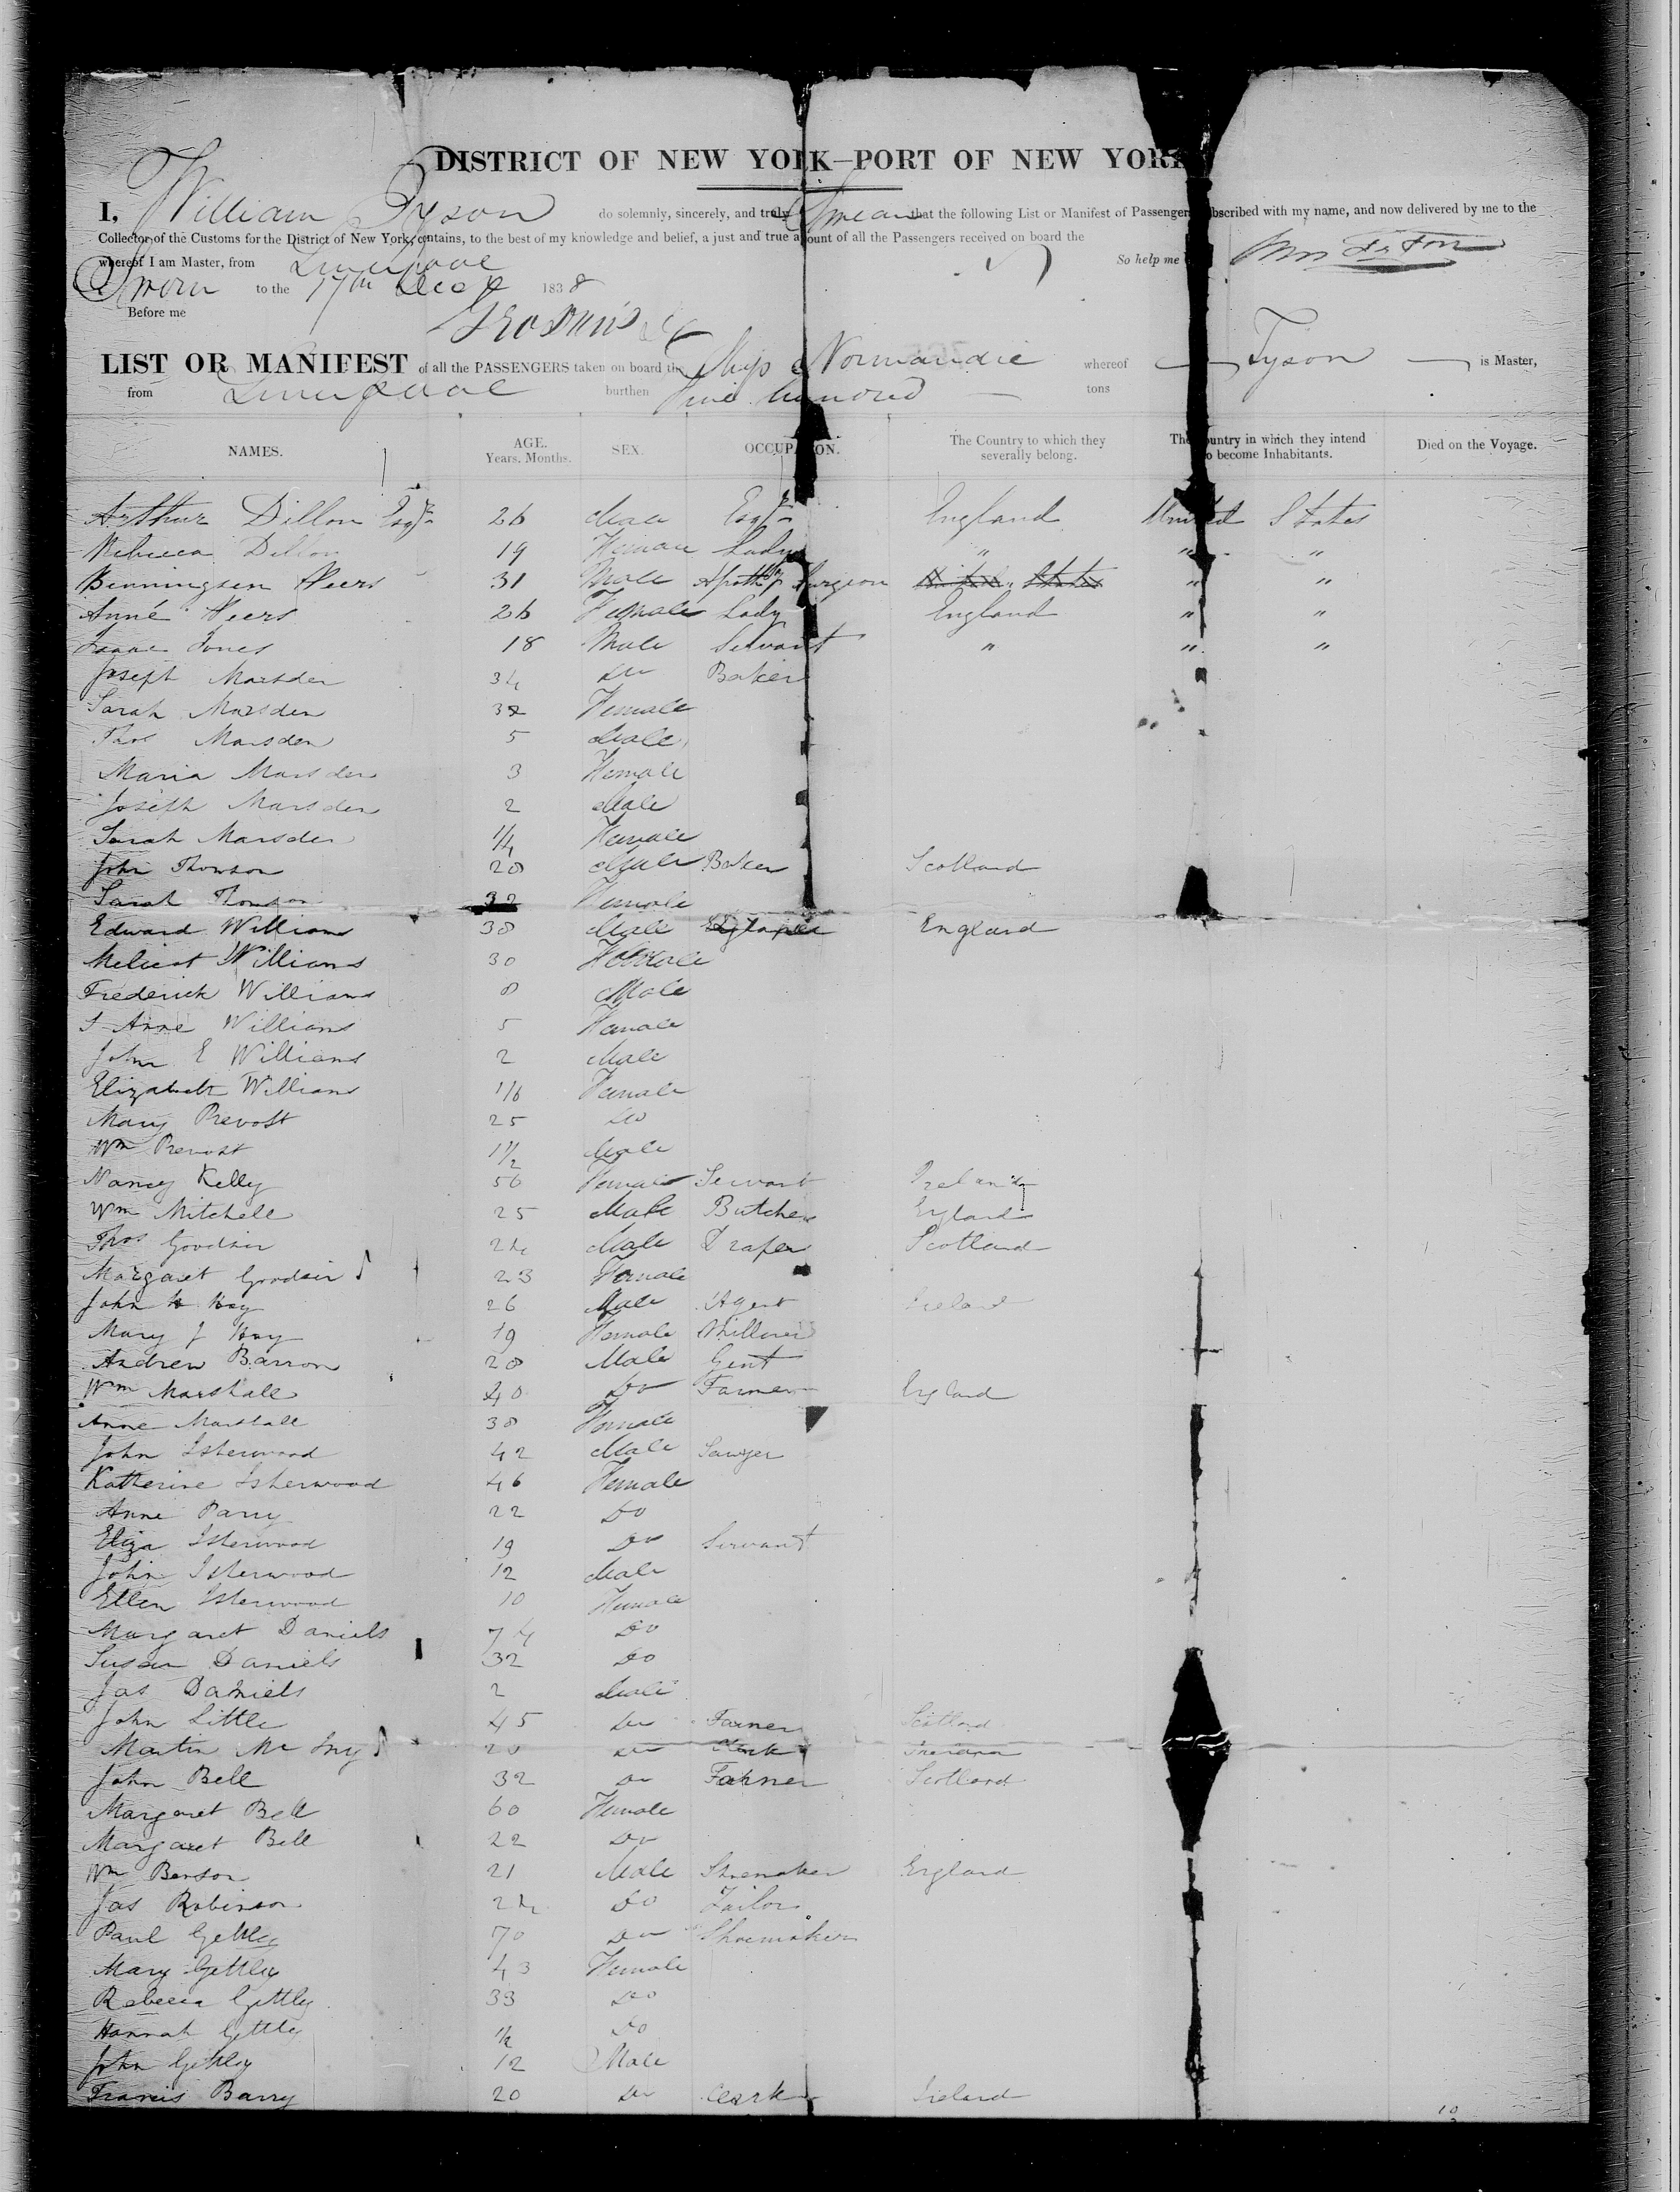 DISTRICT OF NEW YORK—PORT OF NEW YORK
I, William Tyson do solemnly, sincerely, and truly Swear that the following List or Manifest of Passengers subscribed with my name, and now delivered by me to the
Collector of the Customs for the District of New York, contains, to the best of my knowledge and belief, a just and true account of all the Passengers received on board the
whereof I am Master, from Liverpool So help me Wm Tyson
Sworn to the 17th 1838
Before me
LIST OR MANIFEST of all the PASSENGERS taken on board the Ship Normandie whereof Tyson is Master,
from Liverpool burthen Five hundred tons
NAMES. AGE. Years. Months. SEX. OCCUPATION. The Country to which they severally belong. The Country in which they intend to become Inhabitants. Died on the Voyage.
Arthur Dillon Esqr 26 Male Esqr England United States
Rebecca Dillon 19 Female Lady " " "
Benningsen Peers 31 Male Surgeon United States " "
Anne Peers 26 Female Lady England " "
Isaac Jones 18 Male Servant " " "
Joseph Marsden 34 Do Baker
Sarah Marsden 32 Female
Thos Marsden 5 Male
Maria Marsden 3 Female
Joseph Marsden 2 Male
Sarah Marsden 1/4 Female
John Thomson 28 Male Baker Scotland
Sarah Thomson 32 Female
Edward Williams 38 Male England
Melicent Williams 30 Female
Frederick Williams 8 Male
S Anne Williams 5 Female
John E Williams 2 Male
Elizabeth Williams 1/6 Female
Mary Prevost 25 Do
Wm Prevost 1 1/2 Male
Nancy Kelly 56 Female Servant Ireland
Wm Mitchell 25 Male Butcher England
Thos Goodsir 24 Male Draper Scotland
Margaret Goodsir 23 Female
John H Hay 26 Male Agent Ireland
Mary J Hay 19 Female Milliner
Andrew Barron 28 Male Gent
Wm Marshall 40 Do Farmer England
Anne Marshall 38 Female
John Isherwood 42 Male Sawyer
Katherine Isherwood 46 Female
Anne Parry 22 Do
Eliza Isherwood 19 Do Servant
John Isherwood 12 Male
Ellen Isherwood 10 Female
Margaret Daniels 74 Do
Susan Daniels 32 Do
Jas Daniels 2 Male
John Little 45 Do Farmer Scotland
Martin Mc 20 Do Clerk Ireland
John Bell 32 Do Farmer Scotland
Margaret Bell 60 Female
Margaret Bell 22 Do
Wm Benson 21 Male Shoemaker England
Jas Robinson 24 Do Tailor
Paul Gettley 70 Do Shoemaker
Mary Gettley 43 Female
Rebecca Gettley 33 Do
Hannah Gettley 1/2 Do
John Gettley 12 Male
Francis Barry 20 Do Clerk Ireland